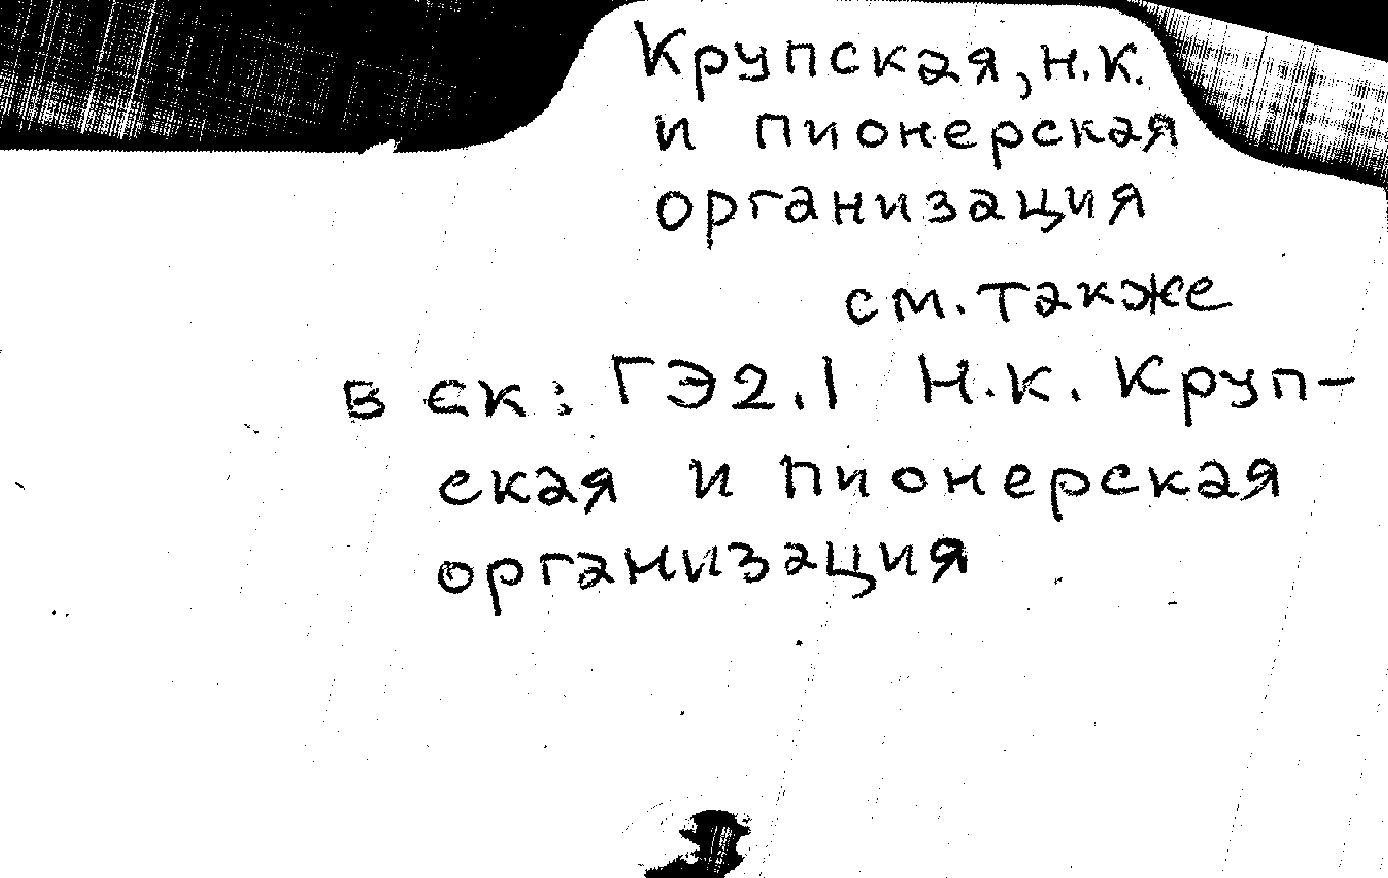 Крупская, Н.К.
и пионерская
организация
см. также
в СК: ГЭ2.1 Н.К. Круп-
ская и пионерская
организация